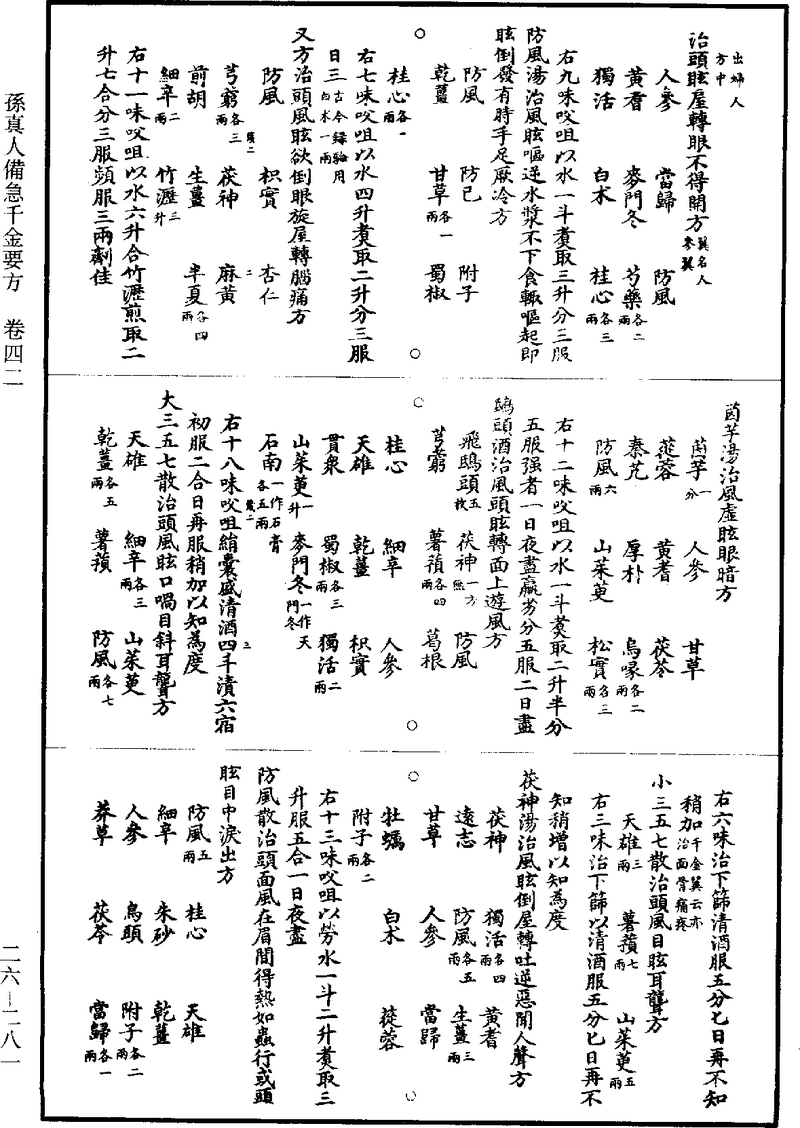 出婦人
方中
治頭眩屋轉眼不得開方翼名人參翼
人參　當歸　防風
黃耆　麥門冬　芍藥各二兩
獨活　白朮　桂心各三兩
右九味㕮咀以水一斗煑取三升分三服
防風湯治風眩嘔逆水漿不下食輒嘔起即
眩倒發有時手足厥冷方
防風　防已　附子
乾薑　甘草各一兩　蜀椒
桂心各一兩
右七味㕮咀以水四升煑取二升分三服
日三古今錄驗用白朮一兩
又方治頭風眩欲倒眼旋屋轉腦痛方
防風　枳實　杏仁
芎藭各三兩　茯神　麻黃
前胡　生薑　半夏各四兩
細辛二兩　竹瀝三升
右十一味㕮咀以水六升合竹瀝煎取二
升七合分三服頻服三兩劑佳
茵芋湯治風虛眩眼暗方
茵芋一分　人參　甘草
蓯蓉　黃耆　茯苓
秦艽　厚朴　烏喙各二兩
防風六兩　山茱萸　松實各三兩
右十二味㕮咀以水一斗煑取二升半分
五服强者一日夜盡羸劣分五服二日盡
鴟頭酒治風頭眩轉面上遊風方
飛鴟頭五枚　茯神一方無　防風
芎藭　薯蕷各四兩　葛根
桂心　細辛　人參
天雄　乾薑　枳實
貫衆　蜀椒各三兩　獨活二兩
山茱萸一升　麥門冬一作天門冬
石南一作石膏各五兩
右十八味㕮咀絹囊盛清酒四斗漬六宿
初服二合日再服稍加以知為度
大三五七散治頭風眩口喎目斜耳聾方
天雄　細辛各三兩　山茱萸
乾薑各五兩　薯蕷　防風各七兩
右六味治下篩清酒服五分匕日再不知
稍加千金翼云亦治面骨痛疼
小三五七散治頭風目眩耳聾方
天雄三兩　薯蕷七兩　山茱萸五兩
右三味治下篩以清酒服五分匕日再不
知稍增以知為度
茯神湯治風眩倒屋轉吐逆惡聞人聲方
茯神　獨活各四兩　黃耆
遠志　防風各五兩　生薑三兩
甘草　人參　當歸
牡蠣　白朮　蓯蓉
附子各二兩
右十三味㕮咀以勞水一斗二升煑取三
升服五合一日夜盡
防風散治頭面風在眉間得熱如蟲行或頭
眩目中淚出方
防風五兩　桂心　天雄
細辛　朱砂　乾薑
人參　烏頭　附子各二兩
莽草　茯苓　當歸各一兩
孫真人備急千金要方　卷四二
二六—二八一